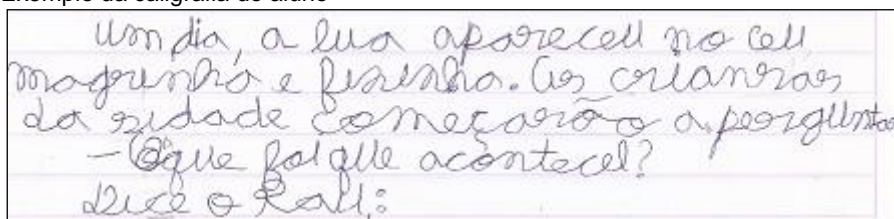 Exemplo da caligrafia do aluno
Um dia, a lua apareceu no ceu
magrinha e fininha. As crianças
da sidade começarão a perguntar
- O que foi que acontecel?
Dice o Raul: